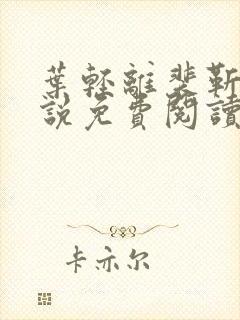 葉輕離裴靳
說免費閱讀
卡亦尔